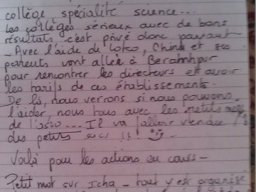 collège spécialité science...
les collèges sérieux avec de bons
résultats c'est privé donc payant
- Avec l'aide de Loko, China et ses
parents vont aller à Berampur
pour rencontrer les directeurs et avoir
les tarifs de ces établissements
De là, nous verrons si nous pouvons
l'aider, nous tous avec les
de l'asso... Il va falloir vendre
des petits !! :)
Voilà pour les actions en cours -
Petit mot sur Icha - tout s'est organisé